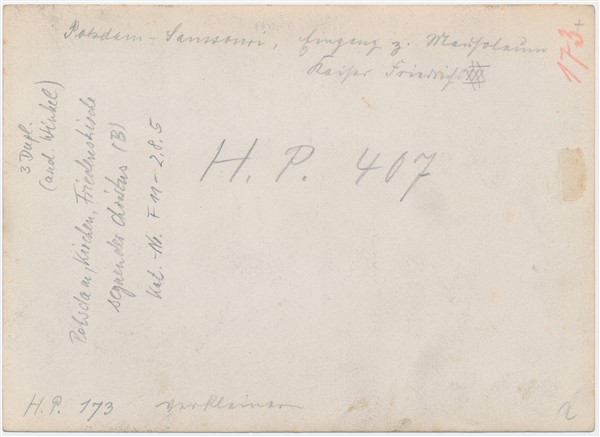 Potsdam-Sanssouci, Eingang z. Mausoleum
Kaiser Friedrich
173+
3 Dupl.
(and. Winkel)
Potsdam, Kirchen, Friedenskirche
segnender Christus (B)
Kat.-Nr. F 11-2.8.5
H. P. 407
H. P. 173 verkleinern
2